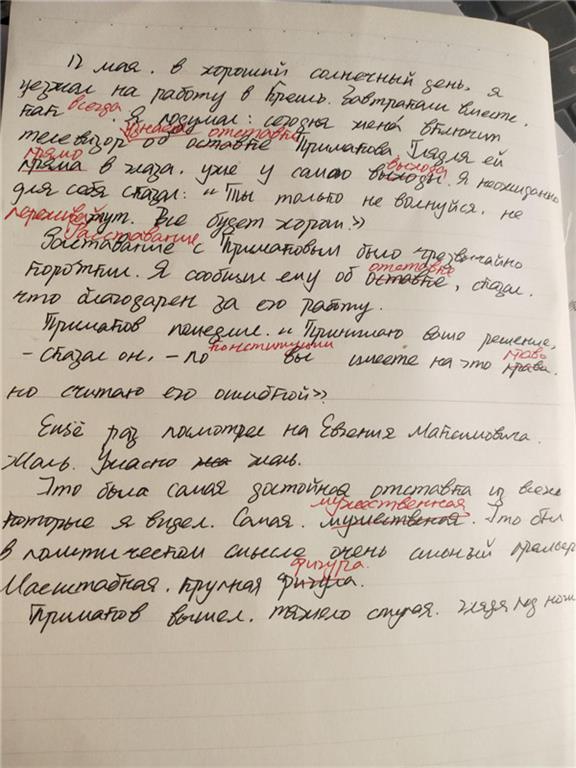 12 мая. в хороший солнечный день, я
уезжал на работу в Кремль. Завтракали вместе,
как всегда Я подумал: сегодня жена включит
узнает отставке
телевизор об оставке Примакова Глядя ей
прямо
пряма в глаза. уже у самого выходы. Я неожиданно
выхода
для себя сказал: "Ты только не волнуйся, не
переживай тут. Все будет хорош.»
Расставание
Заставание с Примаковым было чрезвычайно
коротким. Я сообщил ему об оставке, сказал.
отставке
что благодарен за его работу.
Примаков помедлил. "Принимаю ваше решение,
- сказал он, - по конституции вы имеете на это права.
право
но считаю его ошибкой».
Ещё раз посмотрел на Евгения Максимовича.
Жаль. Ужасно жа жаль.
Это была самая достойная отставка из всех
которые я видел. Самая. мужественая. Это был
мужественная
в политическом смысле очень сильный премьер
Масштабная. Крупная фигула.
фигура.
Примаков вышел. тяжело ступая. глядя под ноги